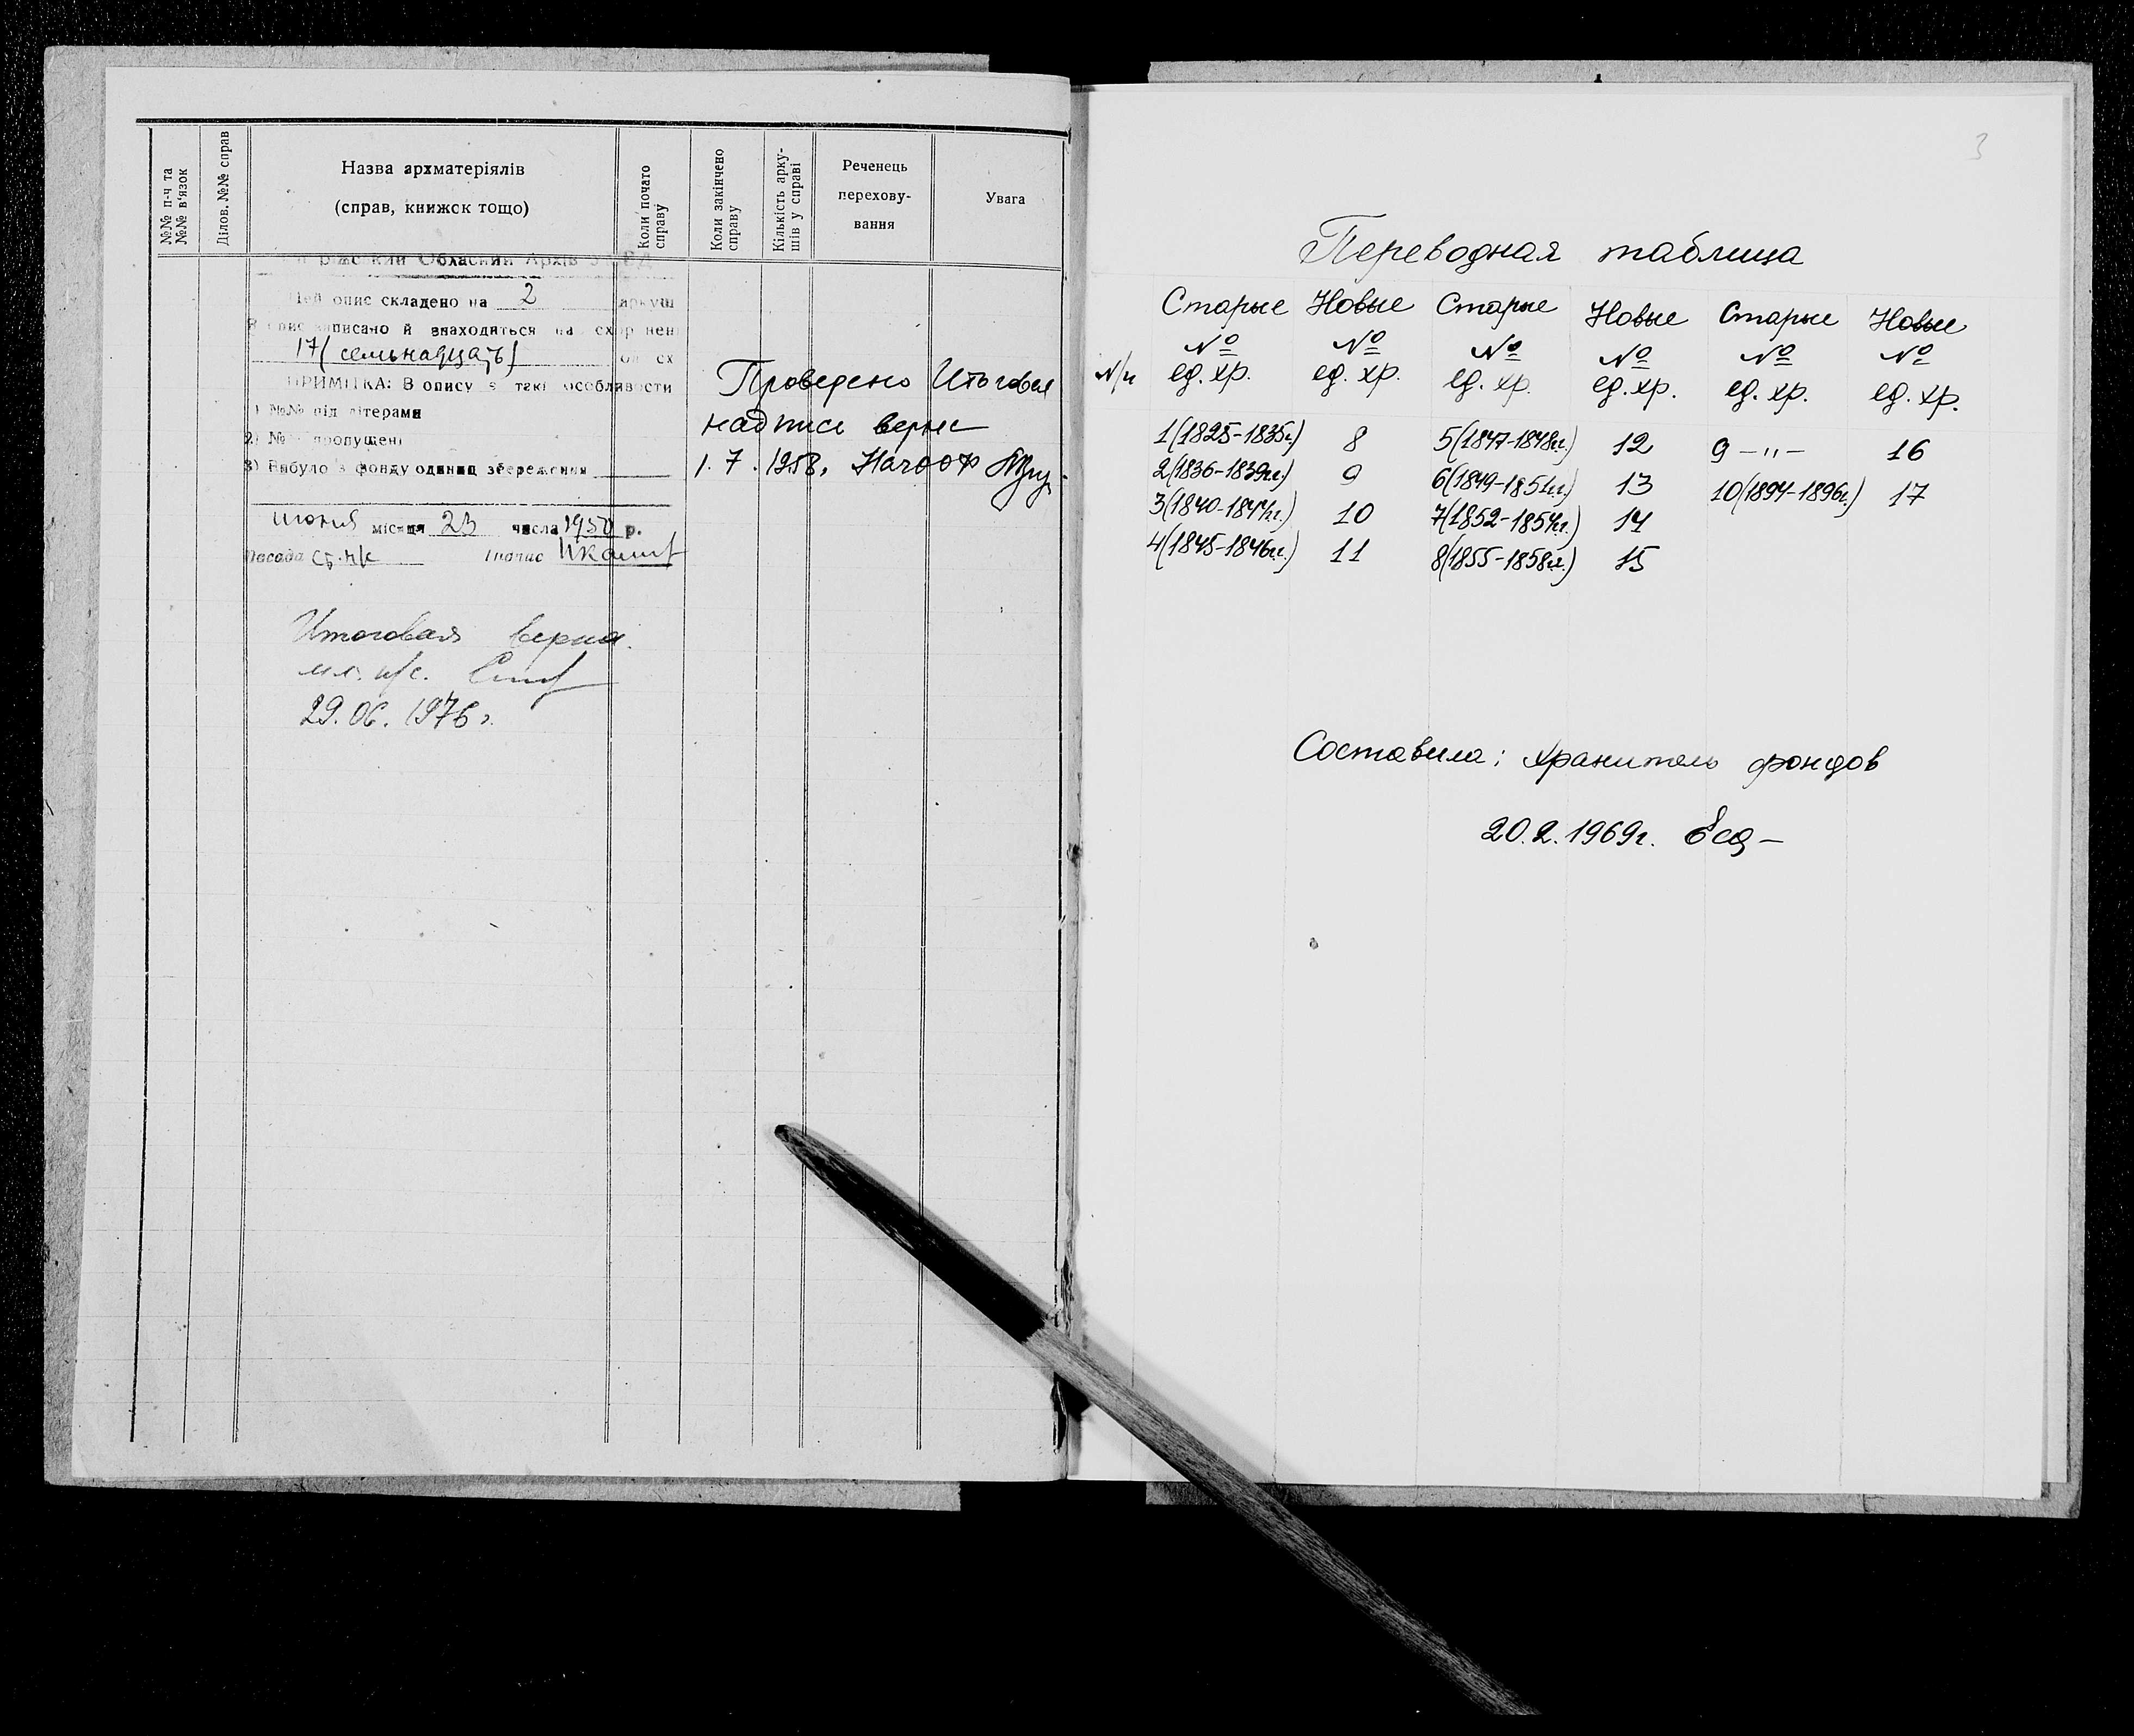 №№ п-ч та
№№ в'язок
Ділов. №№ справ
Назва архматеріялів
(справ, книжок тощо)
Коли почато
справу
Коли закінчено
справу
Кількість арку-
шів у справі
Реченець
перехову-
вання
Увага
Обласний Архів
опис складено на 2 аркуш
записано й знаходяться на
17 (семьнадцать)
ПРИМІТКА: В опису є такі особливости
1) №№ під літерами
2) №№ пропущені
3) Вибуло з фонду одиниц збереження
июня місяця 23 числа 1950 р.
Посада ст. н/с Підпис
Проведено Итоговая
надпись верна
1.7.1958.
Итоговая верна.
мл. н/с.
29.06.1976г.
3
Переводная таблица
Старые Новые Старые Новые Старые Новые
№ № № № № №
ед. хр. ед. хр. ед. хр. ед. хр. ед. хр. ед. хр.
1(1825-1835г.) 8 5(1847-1848гг.) 12 9 -"- 16
2(1836-1839гг.) 9 6(1849-1851гг.) 13 10(1894-1896г.) 17
3(1840-1844гг.) 10 7(1852-1854гг.) 14
4(1845-1846гг.) 11 8(1855-1858гг.) 15
Составила: хранитель фондов
20.2.1969г.